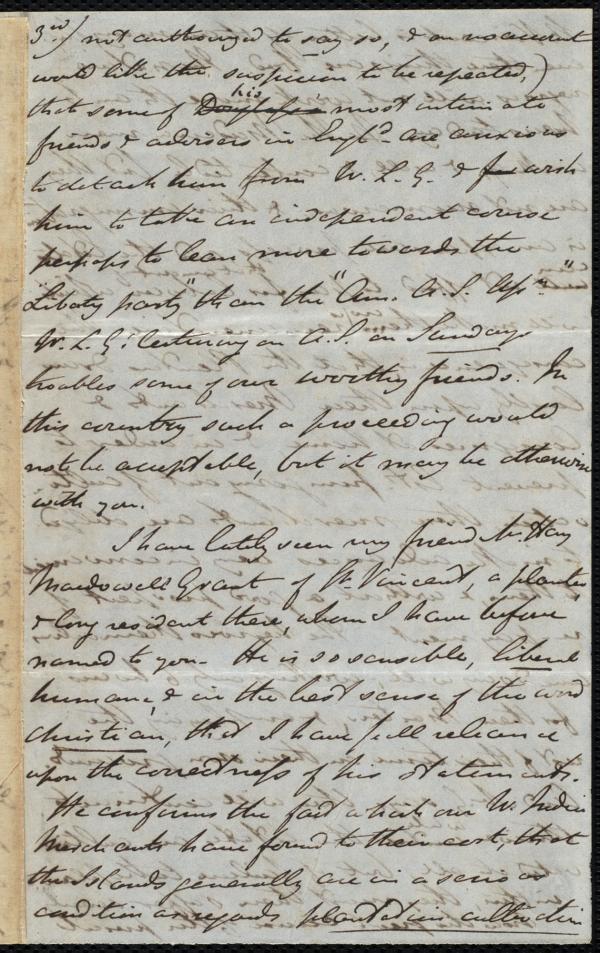 3rd) not authorized to say so, & on no account
would like the suspicion to be repeated,)
that some of Douglass's his most intimate
friends & advisers in Engld. are anxious
to detach him from W. L. G. & wish
him to take an independent course
perhaps to lean more towards the
"Liberty party" than the "Am. A. S. "
W. L. G's lecturing on A. S. on Sundays
troubles some of our worthy friends. In
this country such a proceeding would
not be acceptable, but it may be otherwise
with you.
I have lately seen my friend Mr. Hay
Macdowell Grant of St. Vincent, a planter
& long resident there, whom I have before
named to you. He is so sensible, liberal
humane, & in the best sense of the word
christian, that I have full reliance
upon the correctness of his statements.
He confirms the fact which our W. India
Merchants have found to their cost, that
the Islands generally are in a serious
condition as regards plantation cultivation